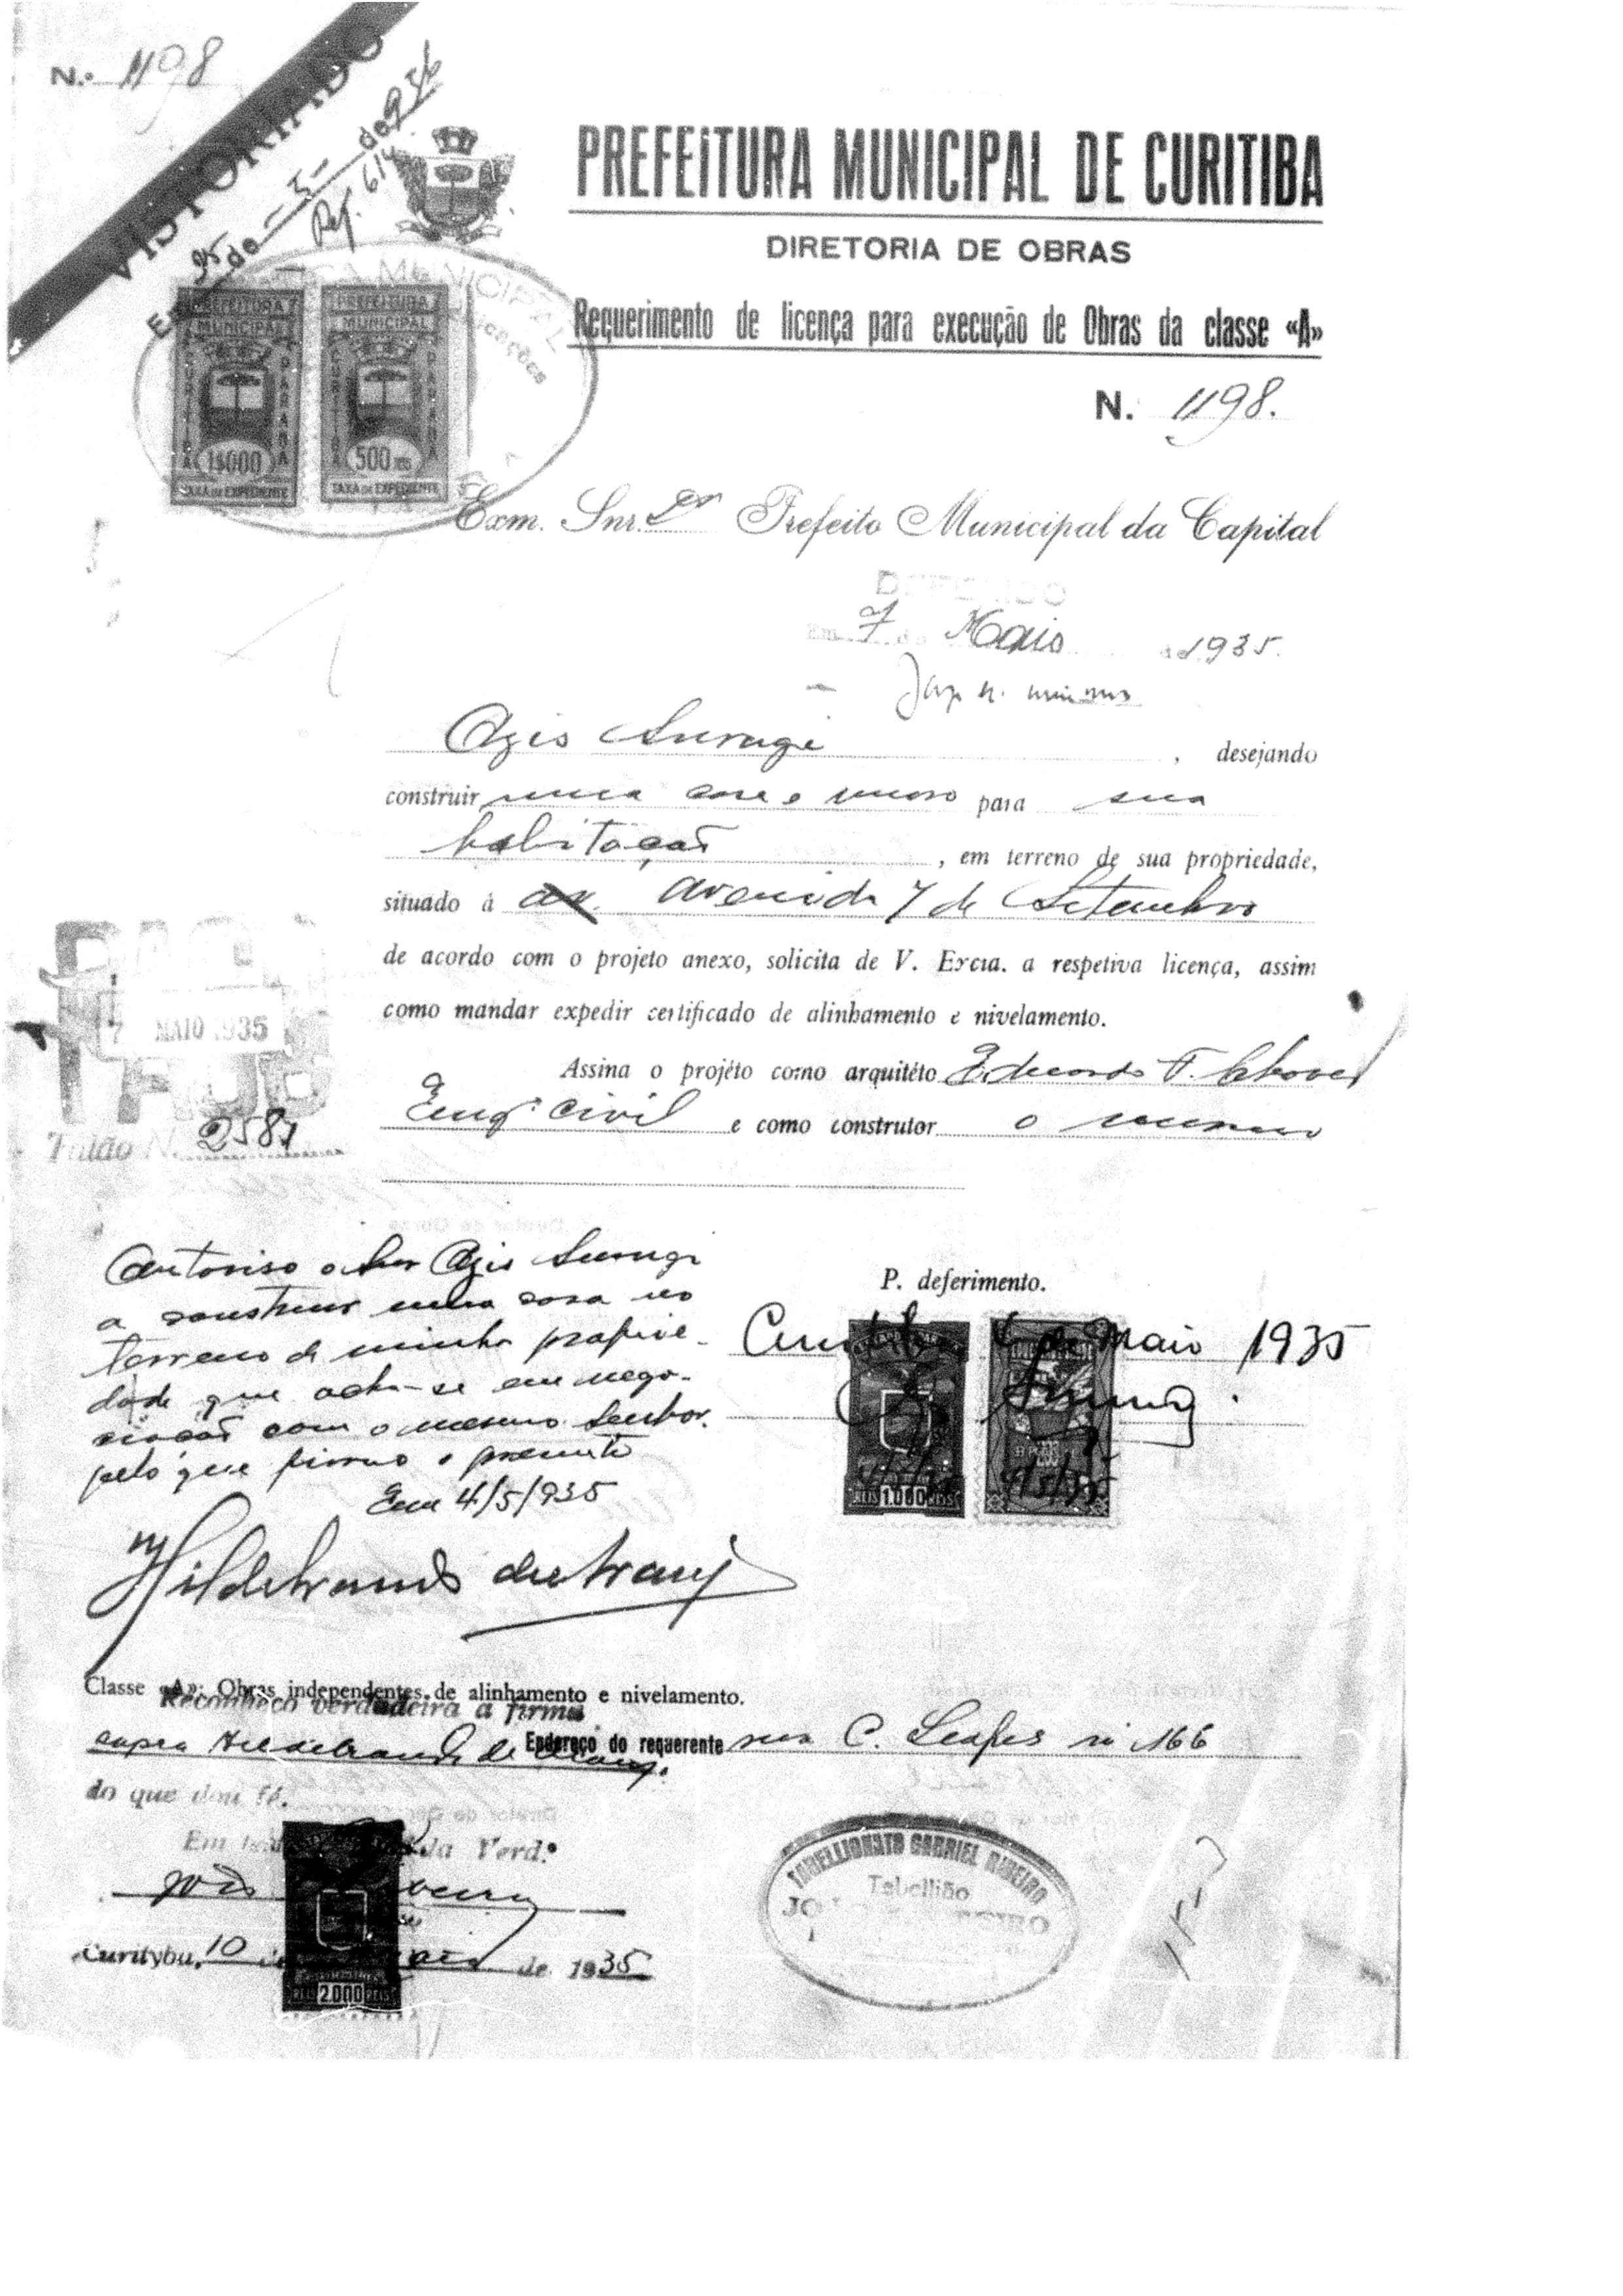 N. 1198
VISTORIADO
Em 25 de -5- de 936
Ref. 614
PREFEITURA MUNICIPAL DE CURITIBA
DIRETORIA DE OBRAS
Requerimento de licença para execução de Obras da classe «A»
N. 1198.
PREFEITURA MUNICIPAL
CURITIBA PARANÁ
1$000
TAXA DE EXPEDIENTE
PREFEITURA MUNICIPAL
CURITIBA PARANÁ
500 REIS
TAXA DE EXPEDIENTE
MUNICIPAL
Exm. Snr. Dr Prefeito Municipal da Capital
DEFERIDO
Em 7 de Maio de 1935.
Azis Surugi, desejando
construir uma casa e muro para sua
habitação, em terreno de sua propriedade,
situado à Avenida 7 de Setembro
de acordo com o projeto anexo, solicita de V. Excia. a respetiva licença, assim
como mandar expedir certificado de alinhamento e nivelamento.
PAGO
7 MAIO 1935
Talão N. 2587
Assina o projéto como arquitéto Eduardo F. Chaves
Engº Civil e como construtor o mesmo
Autoriso o Snr Azis Surugi
a construir uma casa no
terreno de minha proprie-
dade que acha-se em nego-
ciação com o mesmo Senhor.
pelo que firmo o presente
Em 4/5/935
P. deferimento.
Curitiba 4 de Maio 1935
4/5/35
REIS 1.000 REIS
Classe «A»: Obras independentes de alinhamento e nivelamento.
Reconheço verdadeira a firma
supra Hildebrando de Araujo.
Endereço do requerente rua C. Leafes nº 166
do que dou fé.
Em test. da Verd.ᵉ
Curityba, 10 de Maio de 1935
REIS 2.000 REIS
TABELLIONATO GABRIEL RIBEIRO
Tabellião